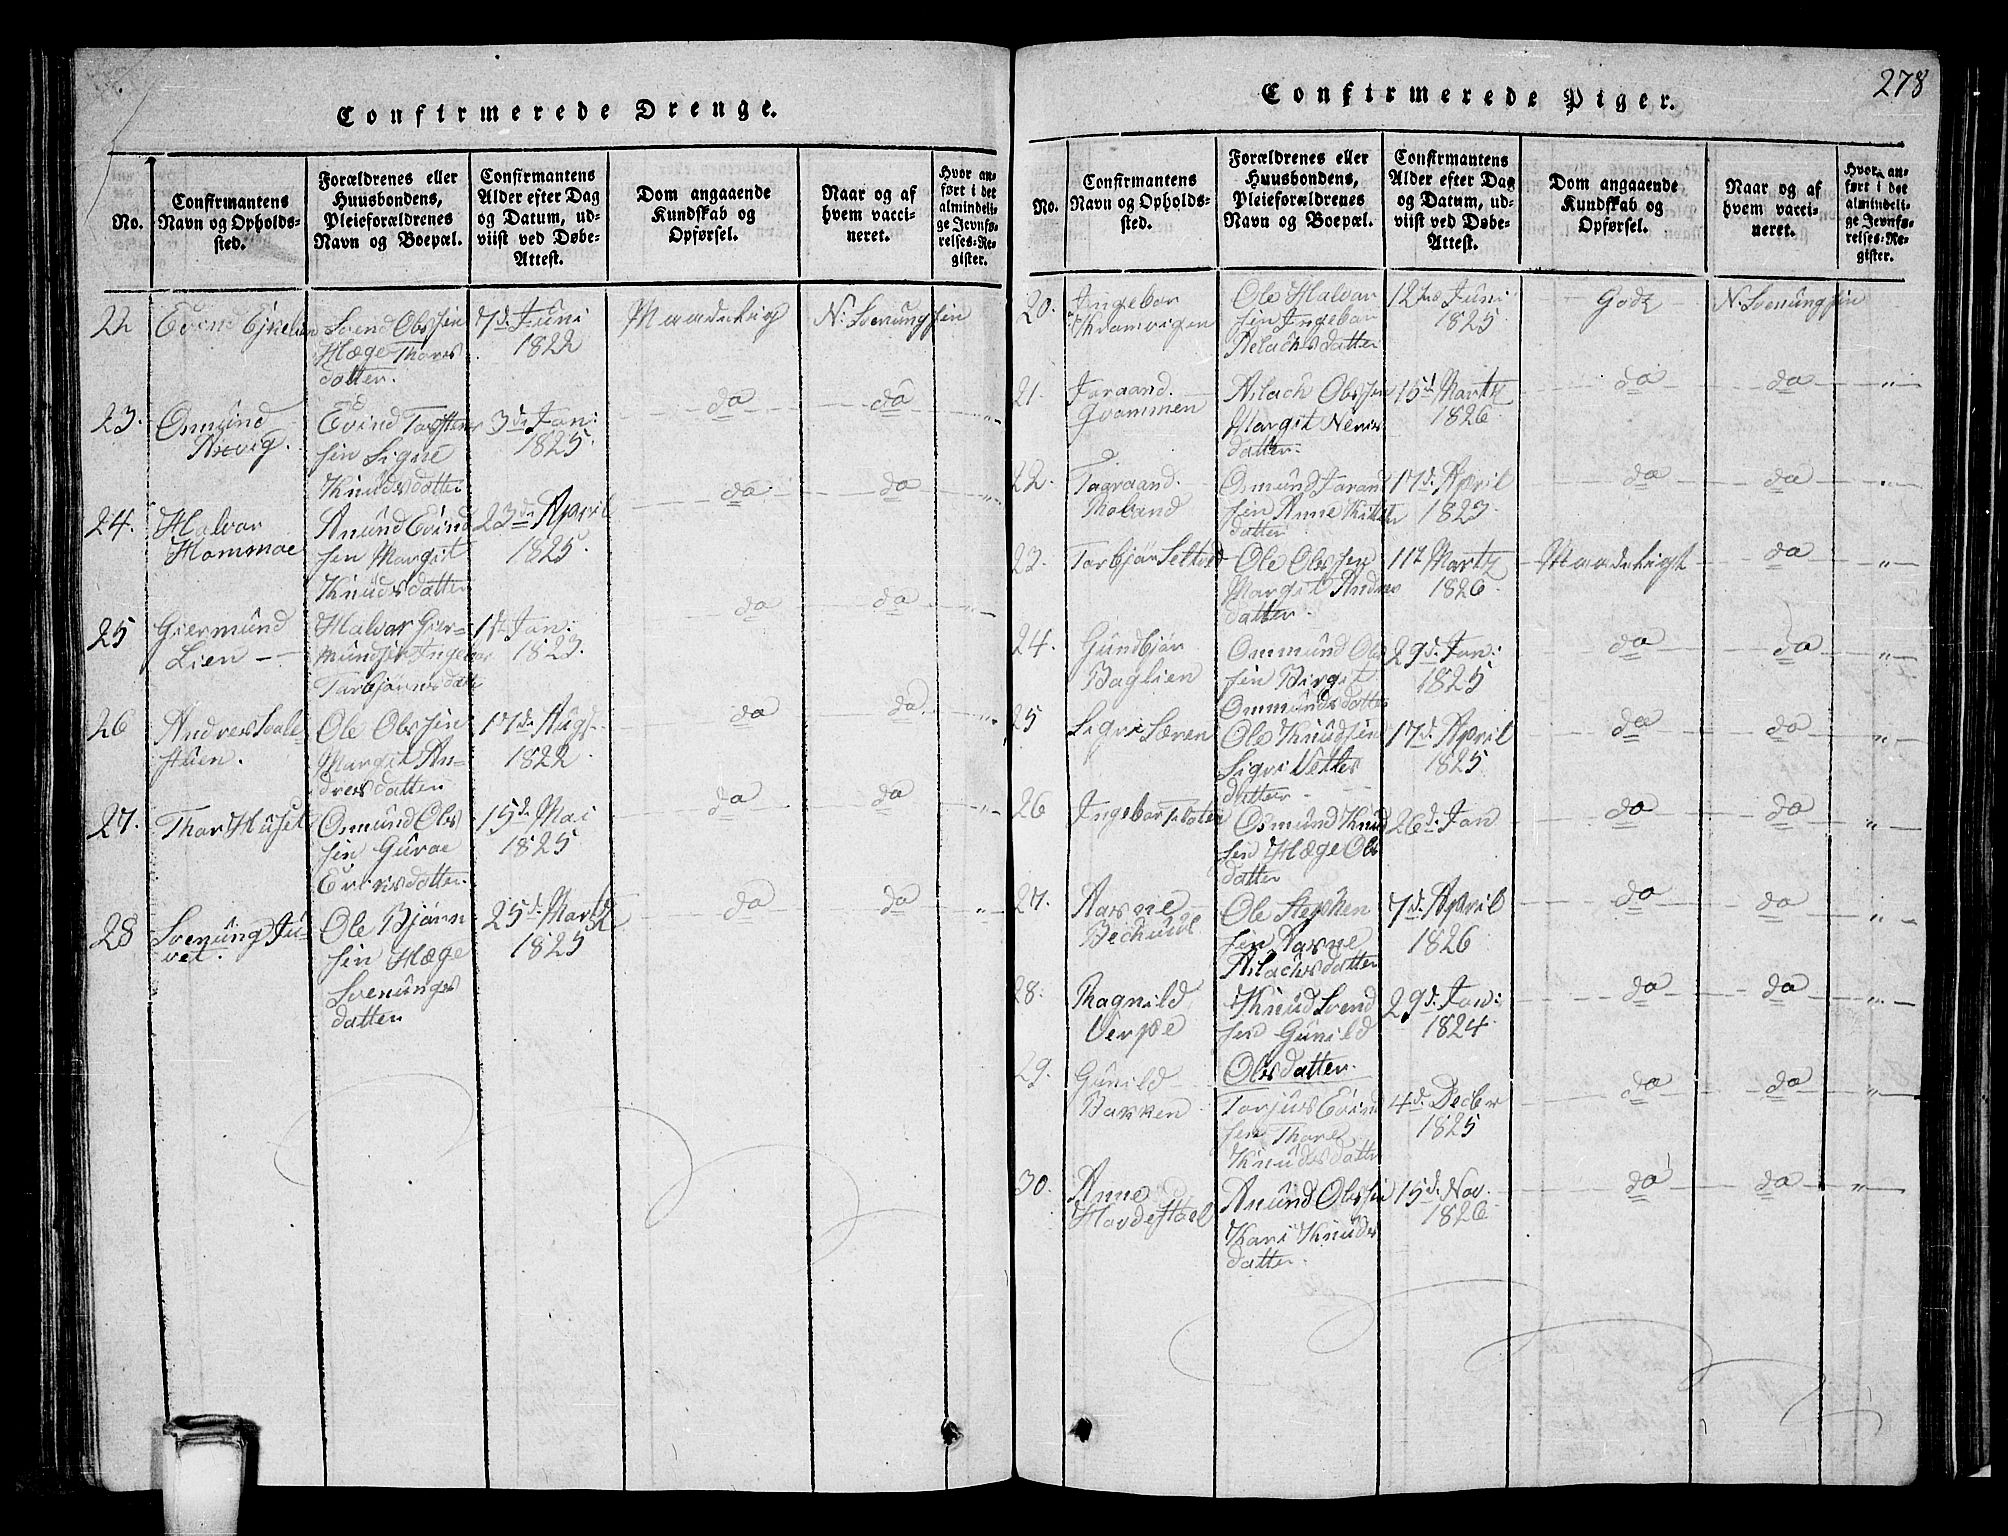 Confirmerede Drenge.
No.
Confirmantens
Navn og Opholds-
sted.
Forældrenes eller
Huusbondens,
Pleieforældrenes
Navn og Boepæl.
Confirmantens
Alder efter Dag
og Datum, ud-
viist ved Døbe-
Attest.
Dom angaaende
Kundskab og
Opførsel.
Naar og af
hvem vacci-
neret.
Hvor an-
ført i det
almindeli-
ge Jevnfø-
relses-Re-
gister.
22 Evind
Svend Olssen
Hæge Thores
datter.
7d Juni
1822
Maadelig
N: Svenungsen
23. Osmund
Evind
sen Signe
Knudsdatter
3d Jan:
1825.
do
do
24. Halvor
Hommoe
Anund Evind
sen Margit
Knudsdatter
23d April
1825.
do
do
25 Giermund
Lien
Halvor Gier-
mundsen Ingebor
Torbjørnsdatt
1t Jan:
1823.
do
do
26 Andres
Ole Olssen
Margit An-
dresdatter
17d Aug
1822
do
do
27. Thor Huset
Osmund Ols
sen Guroe
Eriksdatter.
15d Mai
1825
do
do
28 Svenung Ju-
vet.
Ole Bjørn
sen Hæge
Svenungs
datter
25d Martz
1825
do
do
Confirmerede Piger.
278
No.
Confirmantens
Navn og Opholds-
sted.
Forældrenes eller
Huusbondens,
Pleieforældrenes
Navn og Boepæl.
Confirmantens
Alder efter Dag
og Datum, ud-
viist ved Døbe-
Attest.
Dom angaaende
Kundskab og
Opførsel.
Naar og af
hvem vacci-
neret.
Hvor an-
ført i det
almindeli-
ge Jevnfø-
relses-Re-
gister.
20. Ingebor
Ole Halvor
sen Ingebor
Aslachsdatter
Juni
1825
Godt
N: Svenungsen
21. Joraand
Qvammen
Aslach Olssen
Margit
datter
15d Martz
1826
do
do
22. Tagraand
Roland
Osmund
sen Anne
datter
17d April
1823
do
do
23. Torbjør
Ole Olssen
Margit Andres
datter.
11t Martz
1826
Maadeligt
do
24. Gundbjør
Baglien
Ommund Ols
sen Birgit
Ommundsdatter
29d Jan:
1825
do
do
25 Sigri
Ole Knudsen
Sigri
datter
17d April
1825
do
do
26 Ingebor
Osmund Knud
sen Hæge Ols
datter
26d Jan
do
do
27. Aasne
Bechuus
Ole Stephen
sen Aasne
Aslachsdatter
7d April
1826
do
do
28. Ragnild
Verpe
Knud Svend
sen Gunild
Olsdatter.
29d Jan:
1824
do
do
29. Gunild
Bakken
Torjus Evin
sen Thore
Knudsdatter
4d Decbr
1825
do
do
30. Anne
Anund Olssen
Kari Knuds
datter.
15d Nov.
1826
do
do